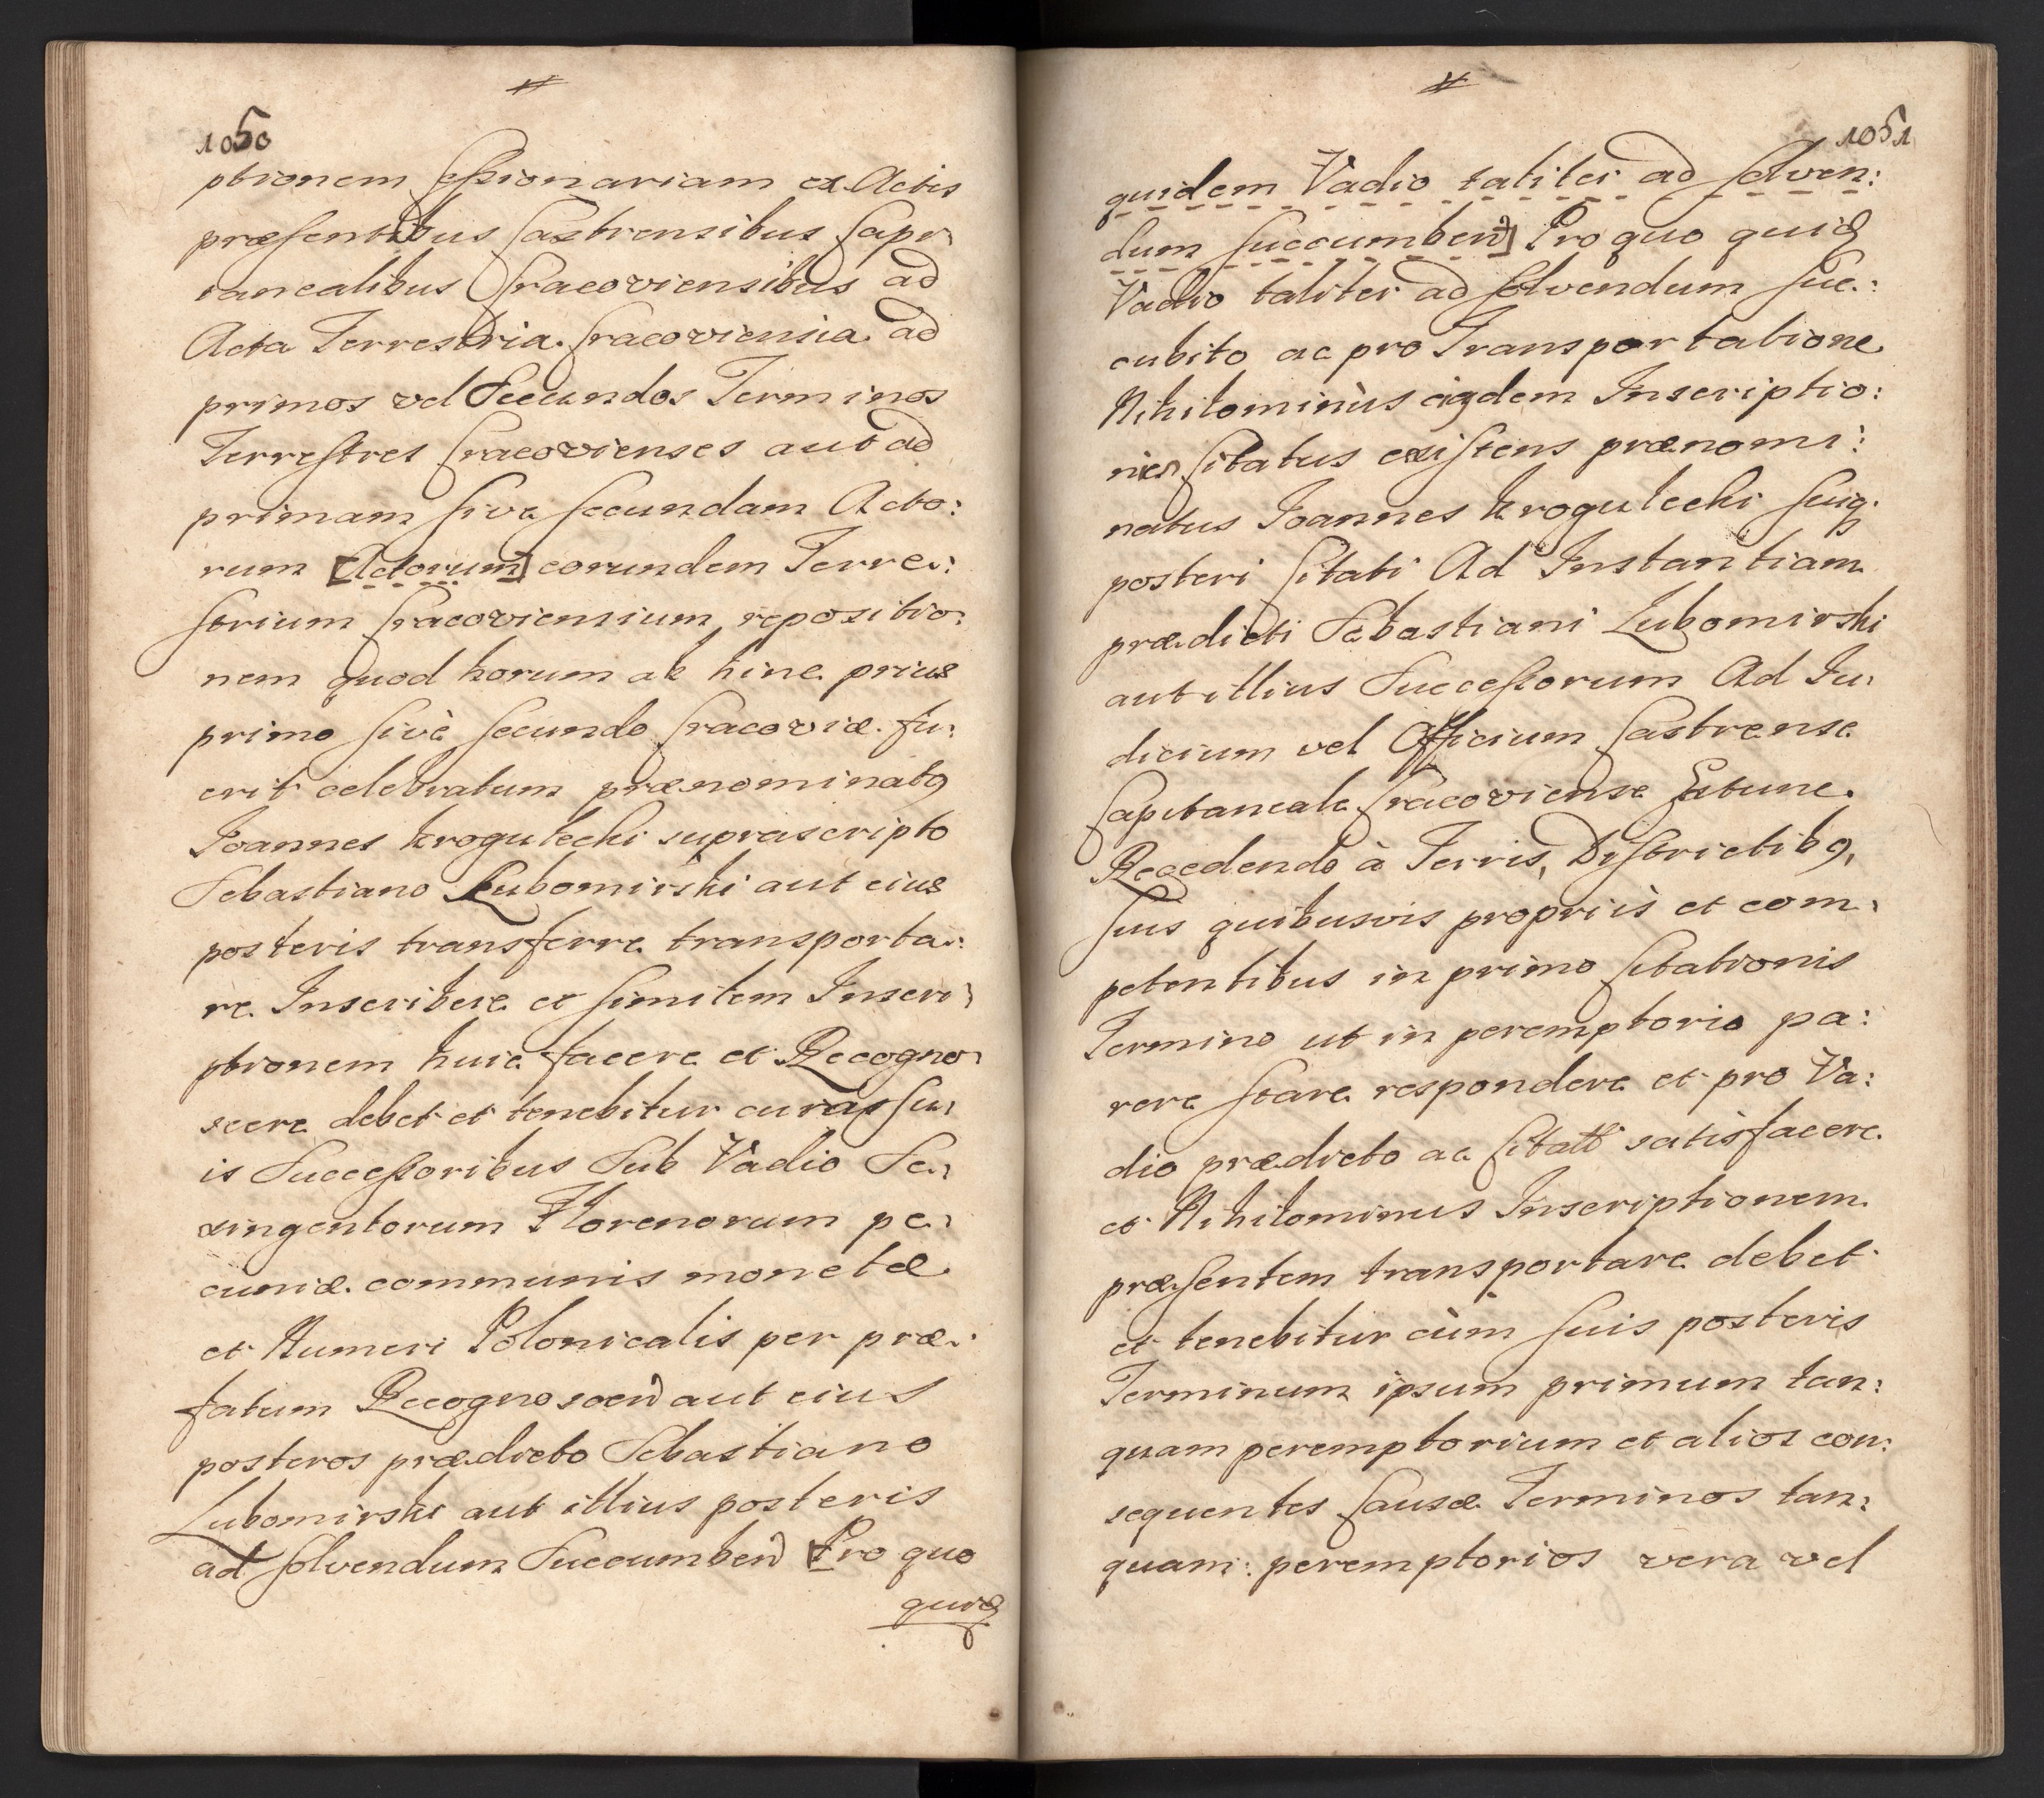 1050
ptionem Cessionariam ex Actis
præsentibus Castrensibus Capi„
taneatibus Cracoviensibus ad
Acta Terrestria Cracoviensia ad
primos vel Secundos Terminos
Terrestres Cracovienses aut ad
primam sive secundam Acto:
rum [Actorum] eorundem Terre:
strium Cracoviensium repositio:
nem quod horum ab hinc prius
primo sivè secundo Cracoviæ fu„
erit celebratum prænominatg
Joannes Krogulecki suprascripto
Sebastiano Lubomirski aut eius
posteris transferre transporta:
re Inscribere et similem Inscri„
ptionem huic facere et Recogno„
scere debet et tenebitur cum su„
is Successoribus Sub Vadio Se„
xingentorum Florenorum pe„
cuniæ communis monetæ
et Numeri Polonicalis per præ:
fatum Recognoscen aut eius
posteros prædicto Sebastiano
Lubomirski aut illius posteris
ad solvendum Succumben Pro quo
quid
1051
quidem Vadio taliter ad solven:
dum succumben] Pro quo quid
Vadio taliter ad solvendum suc:
cubito ac pro Transportatione
Nihilominùs eigdem Inscriptio:
nis Citatus existens prænomi:
natus Joannes Krogulecki suiq.
posteri Citati Ad Instantiam
prædicti Sebastiani Lubomirski
aut illius Successorum Ad Ju„
dicium vel Officium Castrense
Capitaneale Cracoviense Extunc
Recedendo à Terris, Districtibg,
suis quibusvis propriis et com„
petentibus in primo Citationis
Termino ut in peremptorio pa:
rere stare respondere et pro Va:
dio prædicto ac Citatt satisfacere
et Nihilominus Inscriptionem
præsentem transportare debet
et tenebitur cùm suis posteris
Terminum ipsum primum tan:
quam peremptorium et alios con:
sequentes Causæ Terminos tan:
quam: peremptorios vera vel